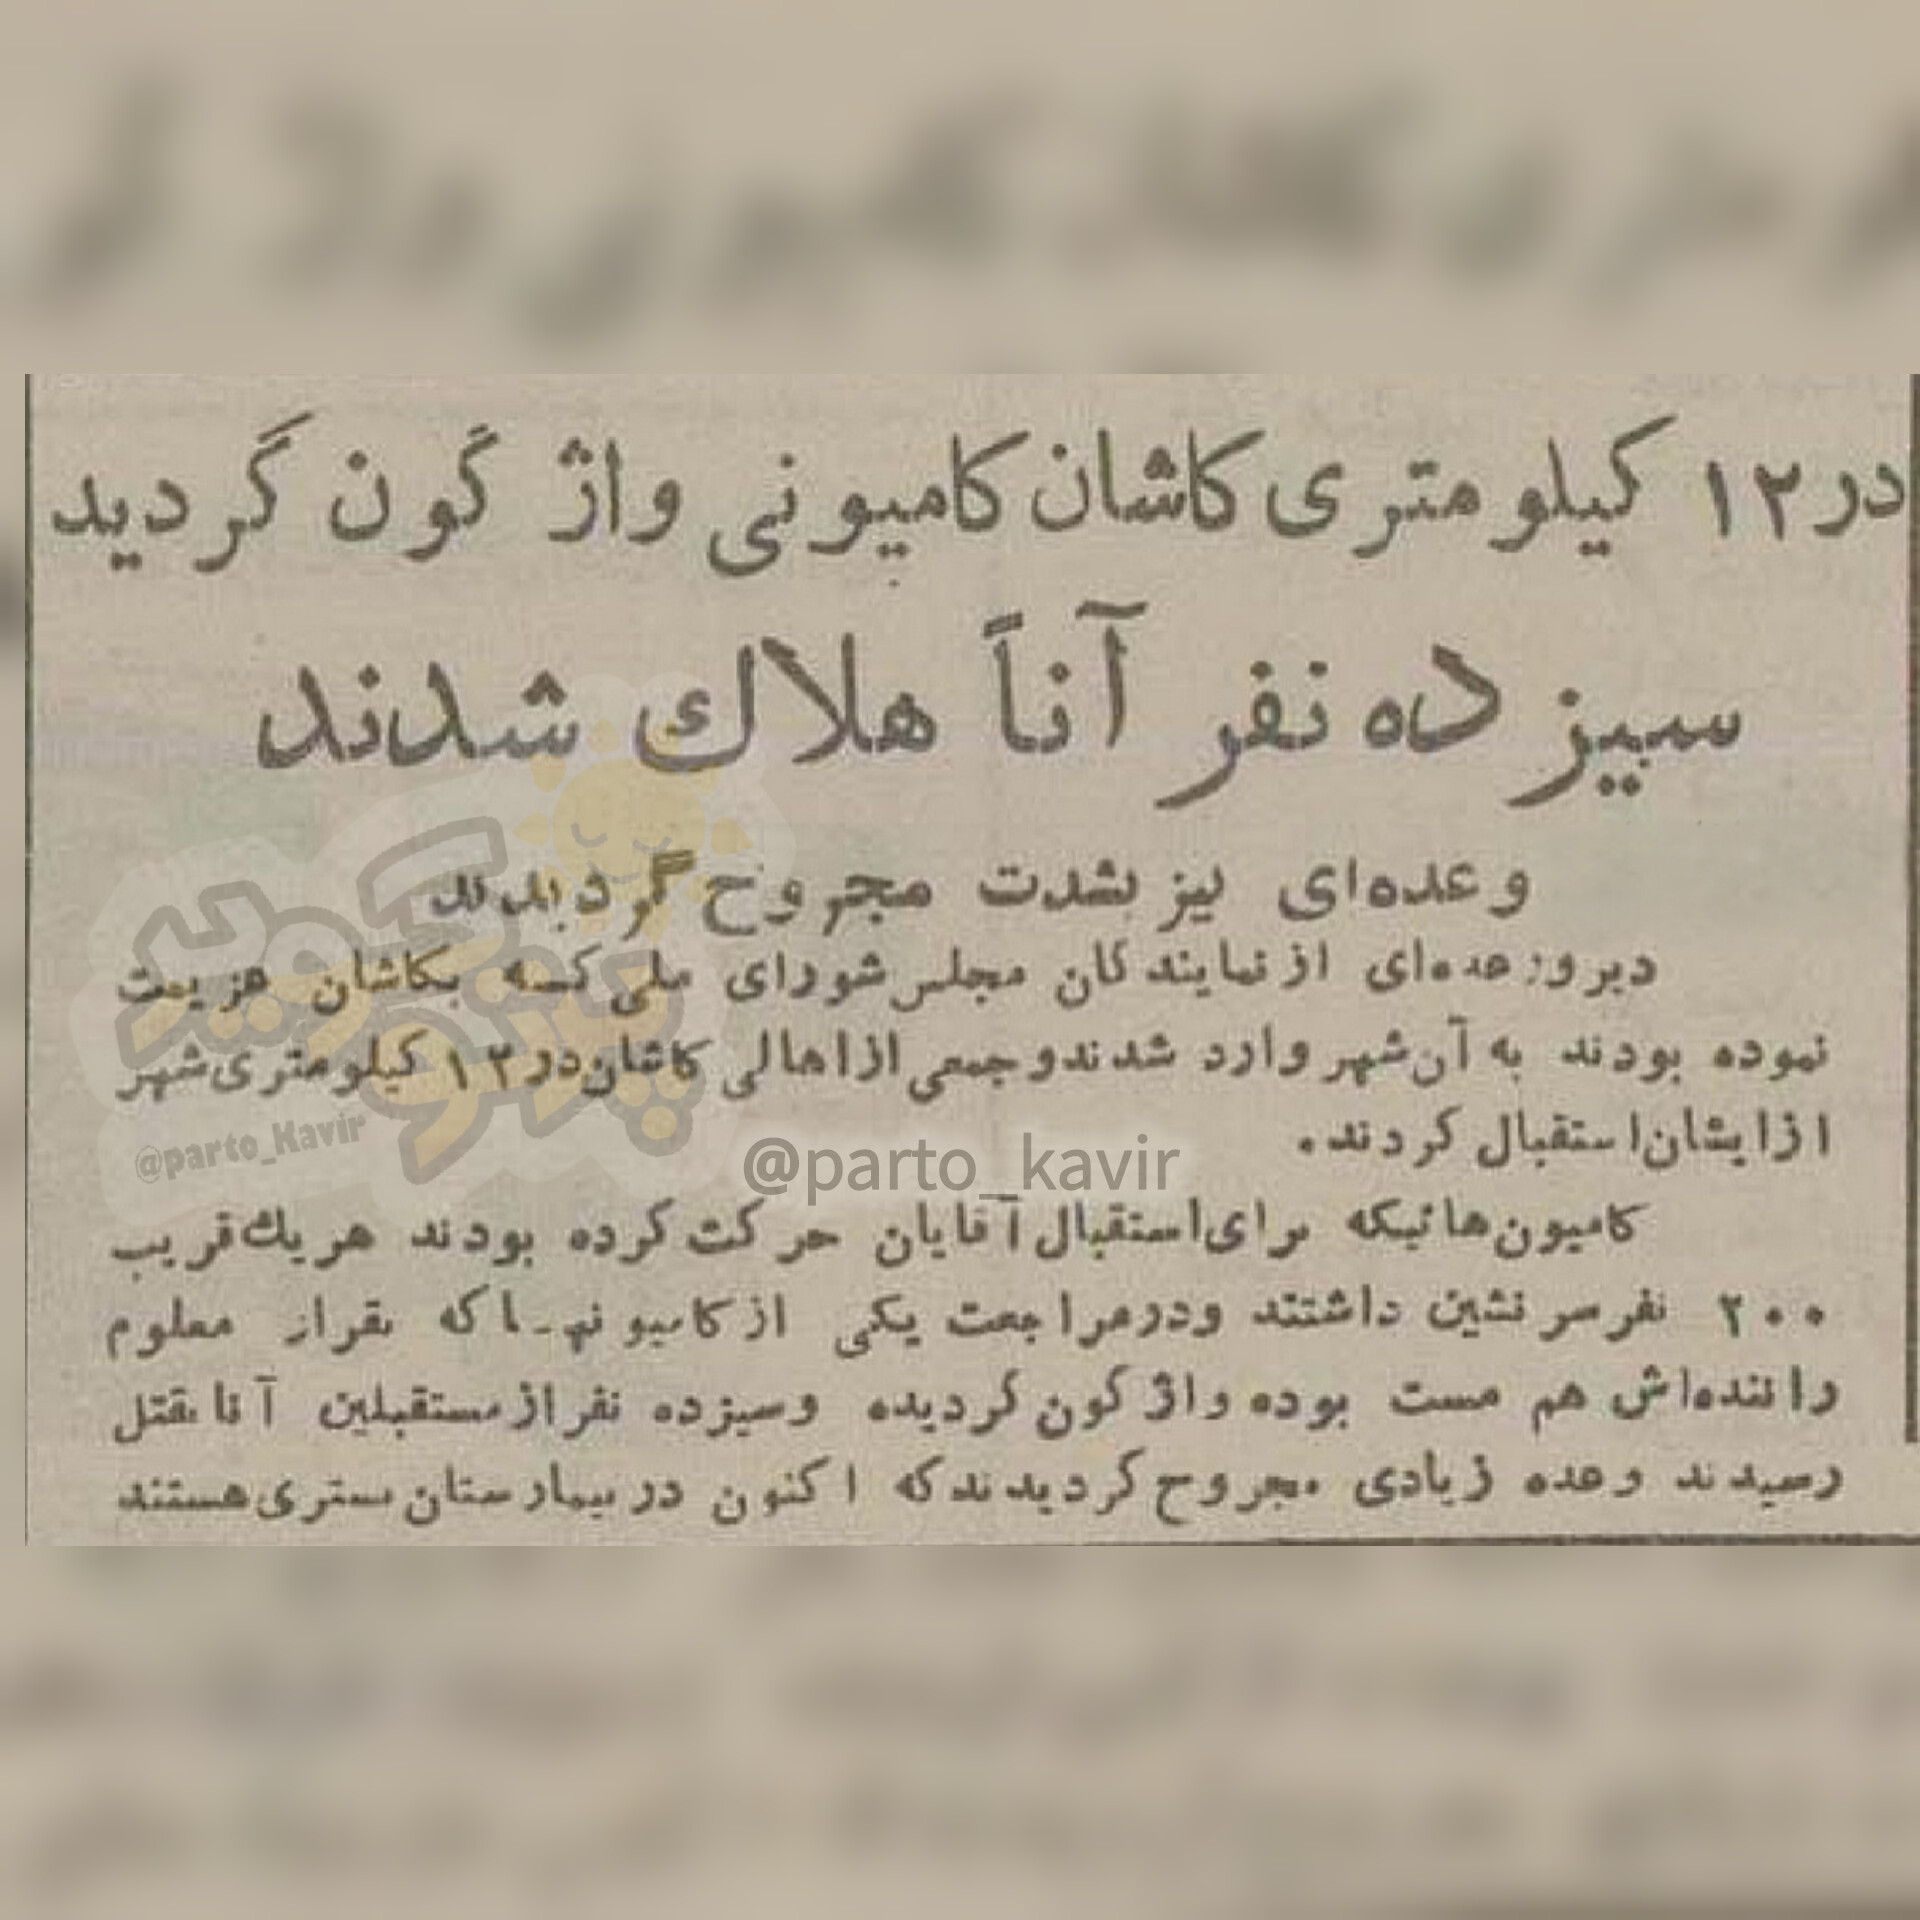 در ۱۲ کیلومتری کاشان کامیونی واژگون گردید
سیزده نفر آناً هلاك شدند
وعده‌ای نیز بشدت مجروح گردیدند
دیروز عده‌ای از نمایندگان مجلس شورای ملی که بکاشان عزیمت
نموده بودند به آن شهر وارد شدند و جمعی از اهالی کاشان در ۱۲ کیلومتری شهر
از ایشان استقبال کردند.
کامیون هائیکه برای استقبال آقایان حرکت کرده بودند هریك قریب
۲۰۰ نفر سرنشین داشتند و در مراجعت یکی از کامیونها که بقرار معلوم
راننده‌اش هم مست بوده واژگون گردیده وسیزده نفر از مستقبلین آنا بقتل
رسیدند وعده زیادی مجروح گردیدند که اکنون در بیمارستان بستری هستند
پرتو کویر
@parto_Kavir
@parto_kavir